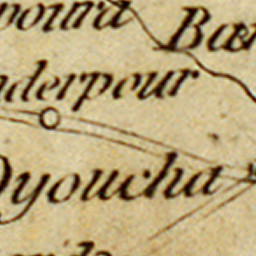 poura Bar
nderpour
Dyoucha